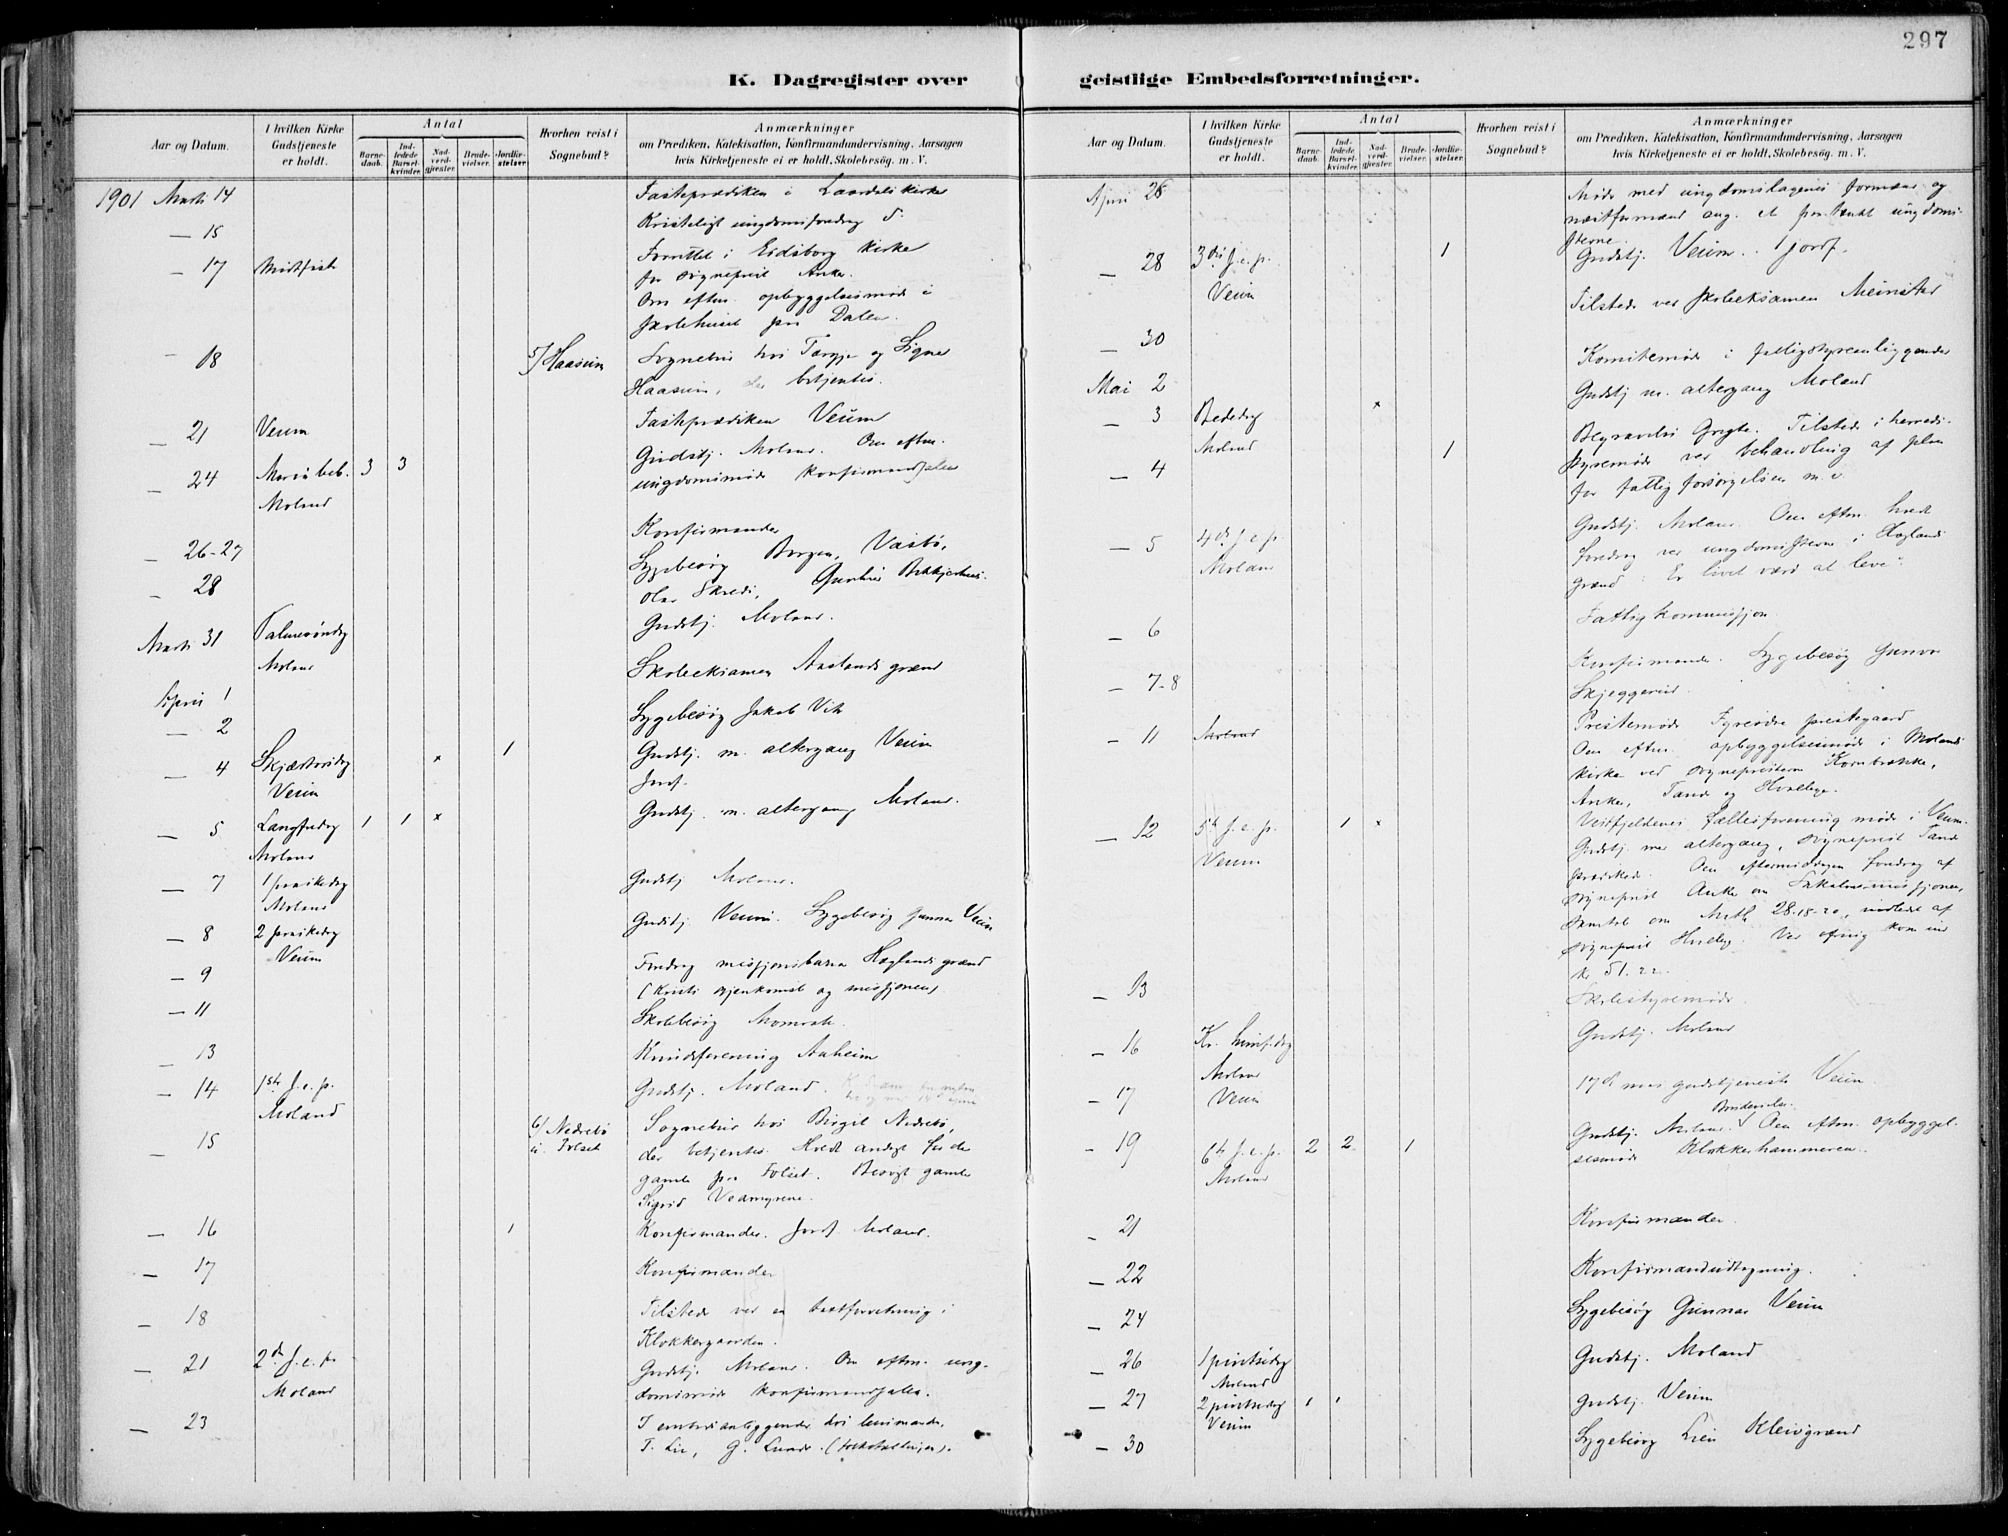 297
K. Dagregister over geistlige Embedsforretninger.
Aar og Datum.
I hvilken Kirke Gudstjeneste er holdt.
Antal
Barnedaab.
Indledede Barselkvinder.
Nadverdgjester.
Brudevielser.
Jordfæstelser
Hvorhen reist i Sognebud?
Anmærkninger
om Prædiken, Katekisation, Konfirmandundervisning, Aarsagen
hvis Kirketjeneste ei er holdt, Skolebesög. m. V.
1901 Marts 14 Fasteprædiken i Laardals kirke
— 15 Kristeligt ungdomsforedrag d:
— 17 Midtfaste Forrettet i Eidsborg kirke
for sogneprest Anker.
Om eftm. opbyggelsesmøde i
skolehuset paa Dalen.
— 18 5/ Haasum Sognebud hos Targje og Signe
Haasum, betjentes.
— 21 Veum Fasteprædiken Veum
— 24 Mariæ beb. Moland 3 3 Gudstj. Moland. Om eftm.
ungdomsmøde konfirmandsalen
— 26-27 Konfirmander
— 28 Sygebesøg Borgen, Vasbø,
Olav Skredi,
Marts 31 Palmesøndag Moland Gudstj. Moland.
April 1 Skoleeksamen Aaslands grænd
— 2 Sygebesøg Jakob Vik
— 4 Skjærtorsdag Veum x 1 Gudstj. m. altergang Veum
Jordf.
— 5 Langfredag Moland 1 1 x Gudstj. m. altergang Moland.
— 7 1 paaskedag Moland Gudstj Moland.
— 8 2 paaskedag Veum Gudstj. Veum. Sygebesøg Gunnar Veum
— 9 Foredrag missjonsbasar Hoglands grænd
(Kristi gjenkomst og missjonen)
— 11 Skolebesøg Momrak.
13 Kvindeforening Aaheim
— 14 1ste s. e. p. Moland Gudstj. Moland.
— 15 6/ Nedrebø ä Folset Sognebud hos Birgit Nedrebø,
der betjentes. Holdt andagt for de
gamle paa Folset. Besøgt gamle
Sigrid Vedamyrene.
— 16 1 Konfirmander. Jordf Moland.
— 17 Konfirmander
— 18 Tilstede ved en takstforretning i
Klokkergaarden.
— 21 2den s. e. p. Moland Gudstj. Moland. Om eftm. ung-
domsmøde konfirmandsalen.
— 23 I embedsanliggender hos lensmanden,
T. Lie, G. Lunde. (folketællingen).
Aar og Datum.
I hvilken Kirke Gudstjeneste er holdt.
Antal
Barnedaab.
Indledede Barselkvinder.
Nadverdgjester.
Brudevielser.
Jordfæstelser.
Hvorhen reist i Sognebud?
Anmærkninger
om Prædiken, Katekisation, Konfirmandundervisning, Aarsagen
hvis Kirketjeneste ei er holdt, Skolebesög. m. V.
April 26 Møde med ungdomslagenes formænd og
næstformænd ang. et ungdoms-
stevne.
— 28 3die s. e. p. Veum 1 Gudstj. Veum. 1 jordf.
Tilstede ved skoleeksamen
— 30 Komitemøde i fattigstyreanliggender
Mai 2 Gudstj m. altergang Moland
— 3 Bededag Moland x
— 4 1 Begravelse Tilstede i herreds-
styremøde ved behandling af plan
for fattigforsørgelsen m. v.
— 5 4de s. e. p. Moland Gudstj. Moland. Om eftm. holdt
foredrag ved ungdomsstevne i Hoglands
grænd: Er livet værd at leve?
— 6 Fattigkommissjon
— 7-8 Konfirmander. Sygebesøg Gunvor
Skjeggerud.
— 11 Moland Prestemøde Fyresdøl prestegaard
Om eftm. opbyggelsesmøde i Molands
kirke ved sognepresterne Kornbrække,
Anker, Tande og Hvalbye.
— 12 5te s. e. p. Veum 1 x Vestfjeldenes fællesforening møde i Veum.
Gudstj med altergang, sogneprest Tande
prædikede. Om eftermiddagen foredrag af
sogneprest Anker om Santalmissjonen,
samtale om Math. 28.18-20, indledet af
sogneprest Hvalbye. Ved ofring kom ind
kr 51.22.
— 13 Skolestyremøde.
— 16 Kr. himf.dag Moland Gudstj. Moland
— 17 Veum 17de mai gudstjeneste Veum
— 19 6te s. e. p. Moland 2 2 1 Gudstj. Moland. Brudevielse. Om eftm. opbyggel-
sesmøde Klokkerhammeren.
— 21 Konfirmander.
— 22 Konfirmandudtagning.
— 24 Sygebesøg Gunnar Veum
— 26 1 pintsedag Moland Gudstj. Moland
— 27 2 pintsedag Veum 1 1 Gudstj. Veum
— 30 Sygebesøg Lien Kleivgrænd